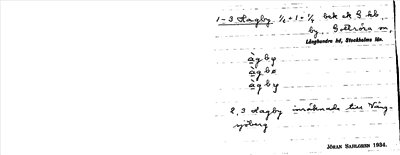 1-3 Hagby ¼ + 1 + ¼ bek ek S kb
by. Gottröra sn,
Långhundra hd, Stockholms län.
àgby
àgbø
àgby
2, 3 Hagby inräknade till Väng-
sjöberg
JÖRAN SAHLGREN 1934.